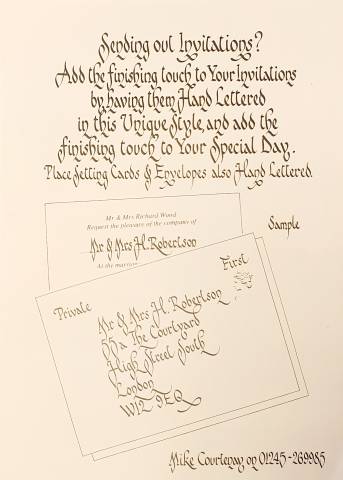 Sending out Invitations?
Add the finishing touch to Your Invitations
by having them Hand Lettered
in this Unique Style, and add the
finishing touch to Your Special Day.
Place Setting Cards & Envelopes also Hand Lettered.
Mr & Mrs Richard Wood
Request the pleasure of the company of
Mr & Mrs H. Robertson
At the marriage
Sample
First
Private
Mr & Mrs H. Robertson
55a The Courtyard
High Street South
London
W12 9EQ
Mike Courtenay on 01245-269985